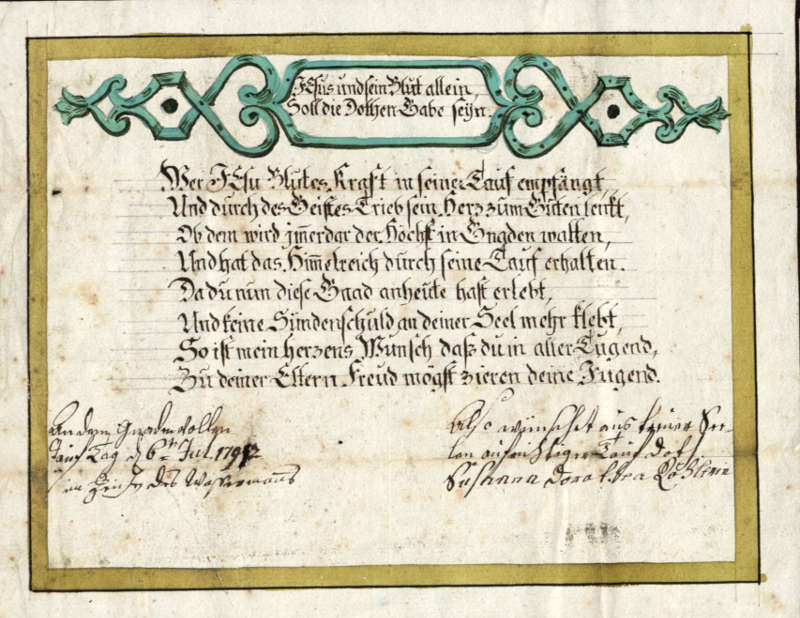 JEsus und sein Blut allein,
Soll die Dothen-Gabe seyn.
Wer JEsu Blutes Krafft in seiner Tauf empfängt,
Und durch des Geistes Trieb sein Herz zum Guten lenkt,
Ob dem wird im̅erdar der Höchst in Gnaden walten,
Und hat das Him̅elreich durch seine Tauf erhalten.
Da du nun diese Gnad anheute hast erlebt,
Und keine Sündenschuld an deiner Seel mehr klebt,
So ist mein Herzens Wunsch daß du in aller Tugend,
Zu deiner Eltern Freud mögst zieren deine Jugend.
An dem Gnadenvollen
Tauf Tag d 6th Jul. 1792
im Zeichen des Wassermanns
Also wünschet aus treuer See-
len aufrichtiger Tauf Dot
Susanna Dorothea